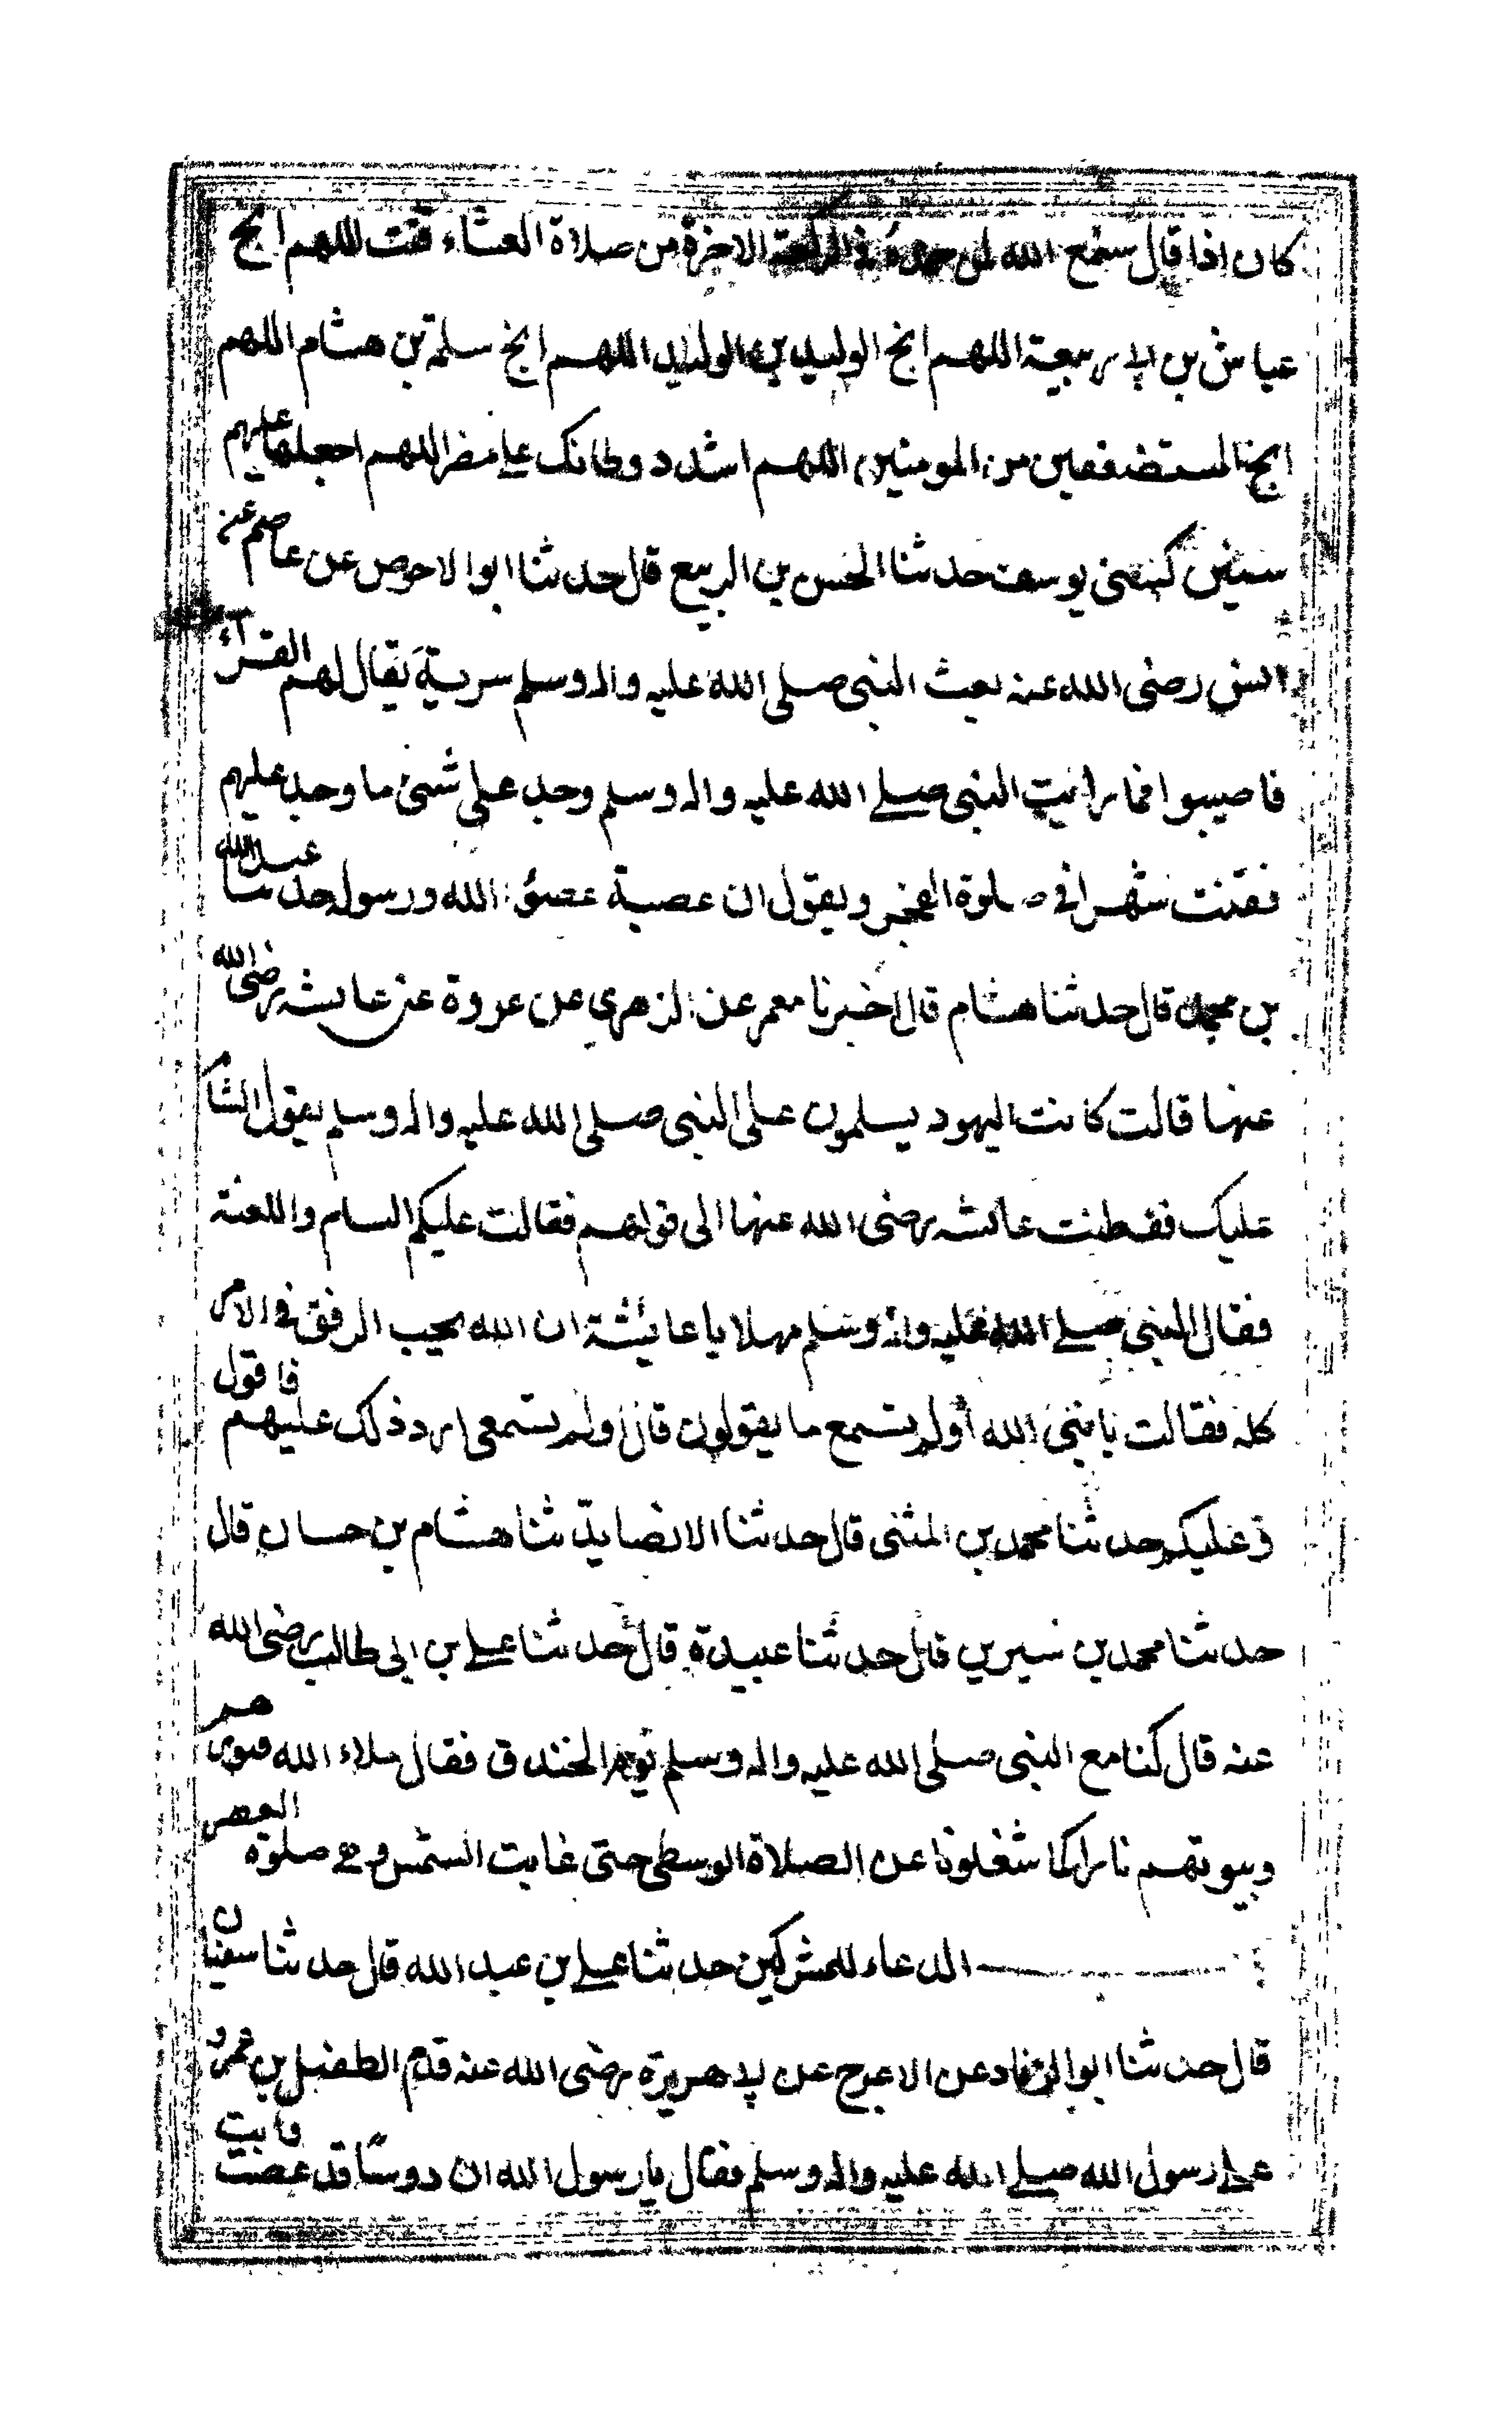 كان اذا قال سمع الله لمن حمده في الركعة الاخرة من صلاة العشاء قنت اللهم انج
عياش بن ابي ربيعة اللهم انج الوليد بن الوليد اللهم انج سلمة بن هشام اللهم
انج المستضعفين من المومنين اللهم اشدد وطاتك على مضر اللهم اجعلها عليهم
سنين كسني يوسف حدثنا الحسن بن الربيع قال حدثنا ابوالاحوص عن عاصم عن
انس رضى الله عنه بعث النبى صلى الله عليه واله وسلم سرية يقال لهم القراء
فاصيبوا فما رايت النبى صلے الله عليه واله وسلم وجد على شئ ما وجد عليهم
فقنت شهرا في صلوة الفجر ويقول ان عصية عصوا الله ورسوله حدثنا عبدالله
بن محمد قال حدثنا هشام قال اخبرنا معمر عن الزهري عن عروة عن عايشه رضى الله
عنها قالت كانت اليهود يسلمون على النبى صلى الله عليه واله وسلم يقول السام
عليك ففطنت عائشه رضى الله عنها الى قولهم فقالت عليكم السام واللعنة
فقال النبى صلے الله عليه واله وسلم مهلا يا عايشة ان الله يحب الرفق في الامر
كله فقالت يا نبى الله أولم تسمع ما يقولون قال أولم تستمعى ارد ذلك عليهم فاقول
وعليكم حدثنا محمد بن المثنى قال حدثنا الانصارى ثنا هشام بن حسان قال
حدثنا محمد بن سيرين قال حدثنا عبيدة قال حدثنا علے بن ابى طالب رضى الله
عنه قال كنا مع النبى صلى الله عليه واله وسلم يوم الخندق فقال ملاء الله قبورهم
وبيوتهم نارا كما شغلونا عن الصلاة الوسطى حتى غابت الشمس وهى صلوة العصر
الدعاء للمشركين حدثنا علے بن عبد الله قال حدثنا سفيان
قال حدثنا ابوالزناد عن الاعرج عن ابي هريرة رضى الله عنه قدم الطفيل بن عمرو
على رسول الله صلے الله عليه واله وسلم فقال يا رسول الله ان دوسا قد عصت وابت